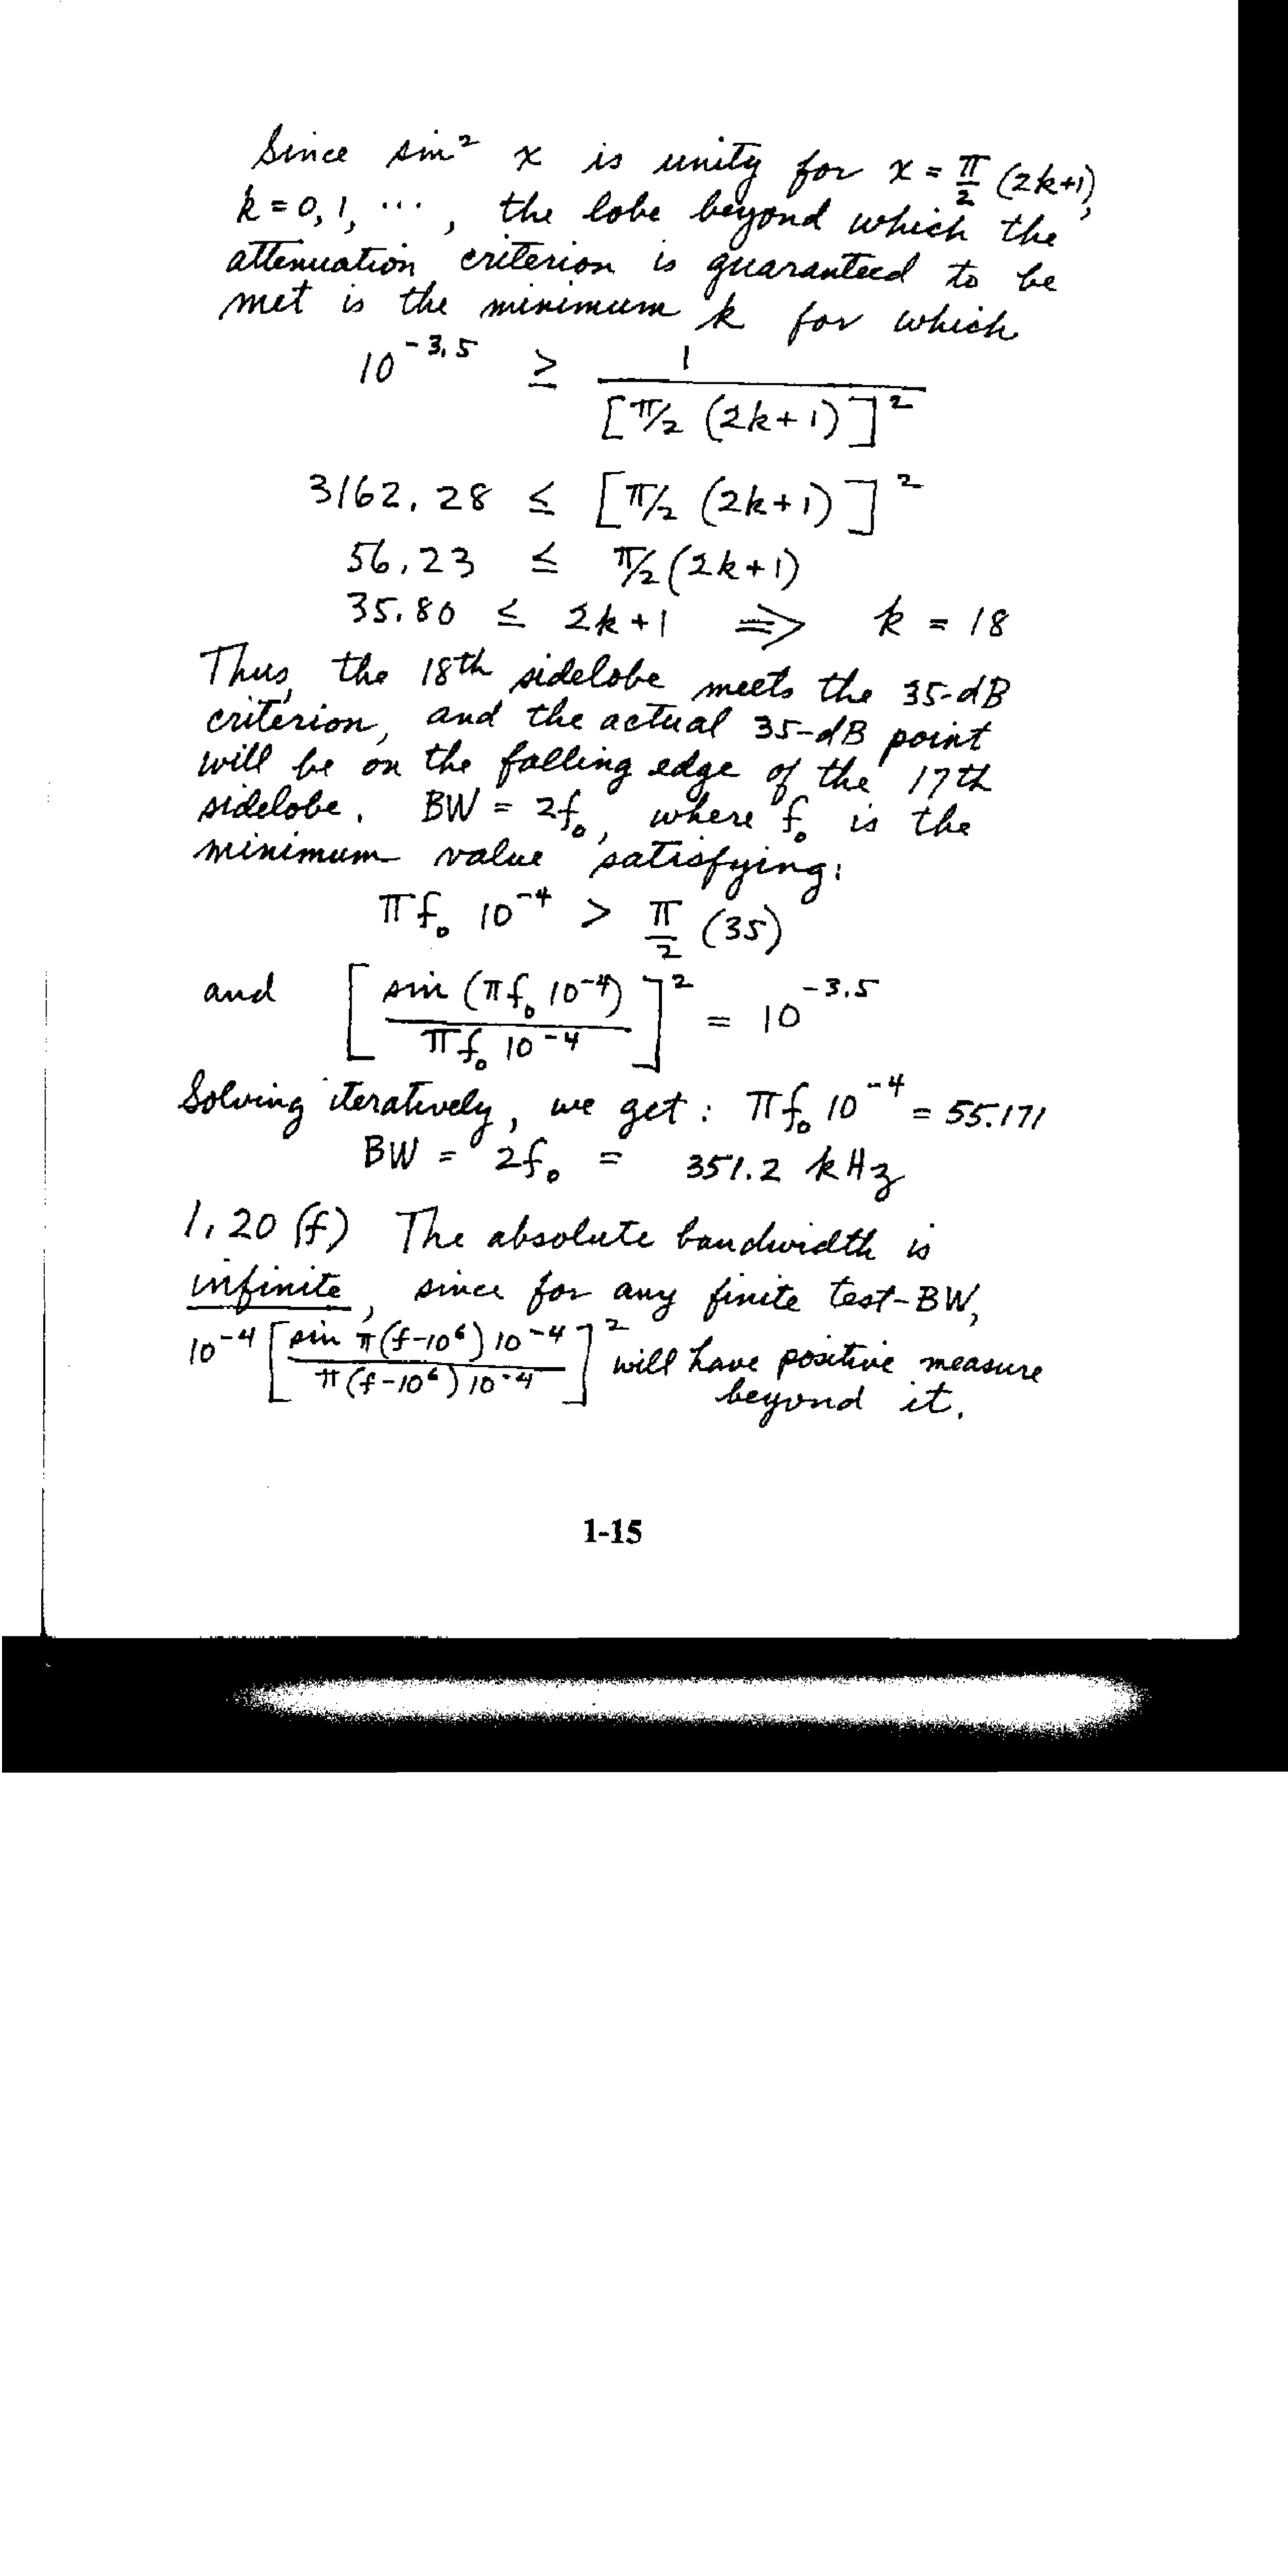 Since sin² x is unity for x = π/2 (2k+1),
k = 0, 1, ··· , the lobe beyond which the
attenuation criterion is guaranteed to be
met is the minimum k for which
10^-3.5 ≥ 1/[π/2 (2k+1)]²
3162.28 ≤ [π/2 (2k+1)]²
56.23 ≤ π/2 (2k+1)
35.80 ≤ 2k+1 ⇒ k = 18
Thus, the 18th sidelobe meets the 35-dB
criterion, and the actual 35-dB point
will be on the falling edge of the 17th
sidelobe. BW = 2f₀, where f₀ is the
minimum value satisfying:
πf₀ 10^-4 > π/2 (35)
and [sin (πf₀ 10^-4)/πf₀ 10^-4]² = 10^-3.5
Solving iteratively, we get: πf₀ 10^-4 = 55.171
BW = 2f₀ = 351.2 kHz
1.20 (f) The absolute bandwidth is
infinite, since for any finite test-BW,
10^-4 [sin π(f-10⁶) 10^-4/π(f-10⁶) 10^-4]² will have positive measure
beyond it.
1-15